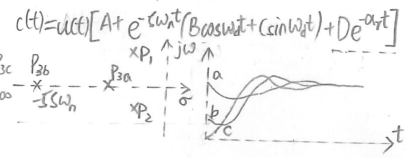 c(t)=u(t)[A+e^{-ζω_n t}(Bcosω_d t+Csinω_d t)+De^{-α_r t}]
×P₁ jω
P₃c P₃b P₃a σ a
∞ -5ζω_n ×P₂ b
c t